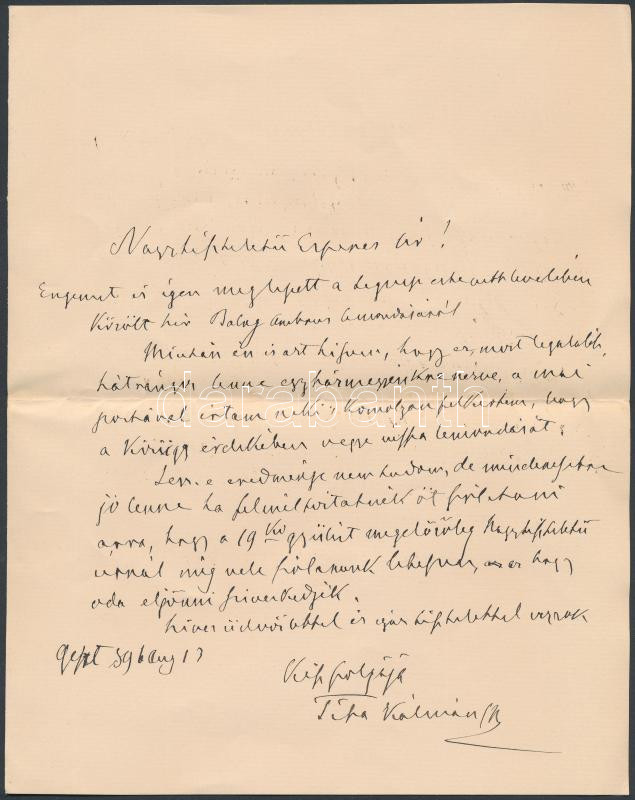 Nagytiszteletű Esperes Úr!
Engemet is igen meglepett a tegnap érkezett levelében
közölt hír Balog Ambrus lemondásáról.
Miután én is azt hiszem, hogy ez, most legalább,
hátrányos lenne egyházmegyénkre nézve, a mai
postával írtam neki s komolyan felkértem, hogy
a közügy érdekében vegye vissza lemondását;
Lesz-e eredménye nem tudom, de mindenesetre
jó lenne ha felmélt őt szólítani
arra, hogy a 19ki gyűlést megelőzőleg Nagytiszteletű
úrnál még vele szólanunk lehessen, hogy
oda eljönni szíveskedjék.
Szíves üdvözlettel és igaz tisztelettel vagyok
Geszt 896 aug 13
Kész szolgája
Tisza Kálmán
darabanth